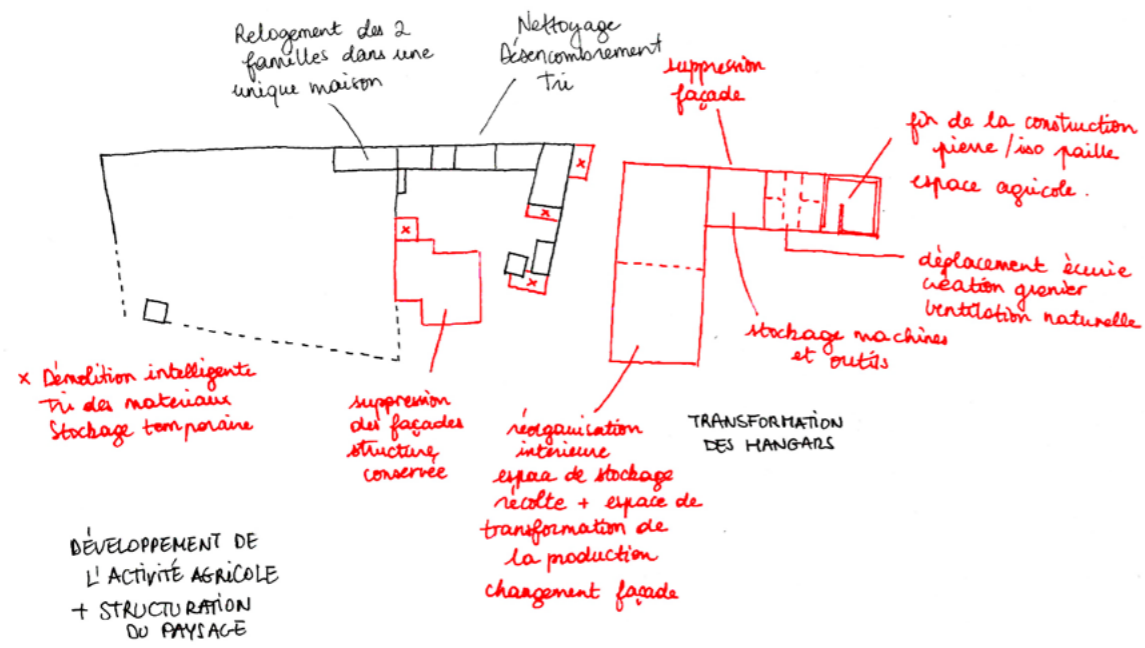 Relogement des 2
familles dans une
unique maison
Nettoyage
Désencombrement
Tri
suppression
façade
fin de la construction
pierre / iso paille
espace agricole.
déplacement écurie
création grenier
ventilation naturelle
stockage machines
et outils
x Démolition intelligente
Tri des matériaux
Stockage temporaire
suppression
des façades
structure
conservée
réorganisation
intérieure
espace de stockage
récolte + espace de
transformation de
la production
changement façade
TRANSFORMATION
DES HANGARS
DÉVELOPPEMENT DE
L'ACTIVITÉ AGRICOLE
+ STRUCTURATION
DU PAYSAGE